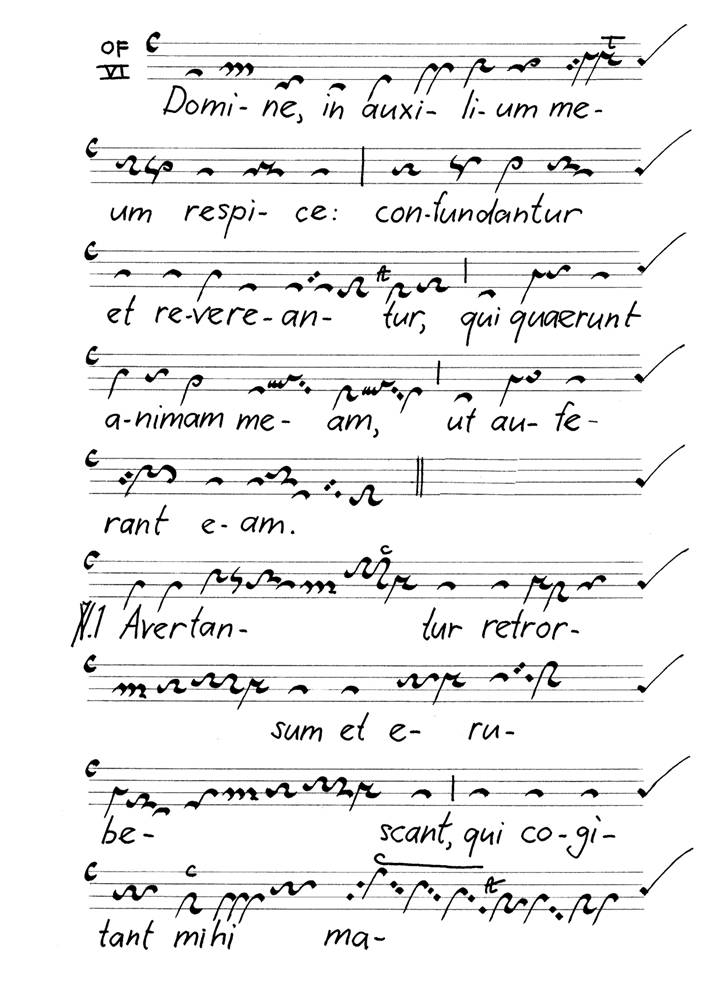 OF
VI
Domi- ne, in auxi- li- um me-
um respi- ce: con-fundantur
et re-vere-an- tur, qui quaerunt
a-nimam me- am, ut au- fe-
rant e- am.
℣.1 Avertan- tur retror-
sum et e- ru-
be- scant, qui co-gi-
tant mihi ma-